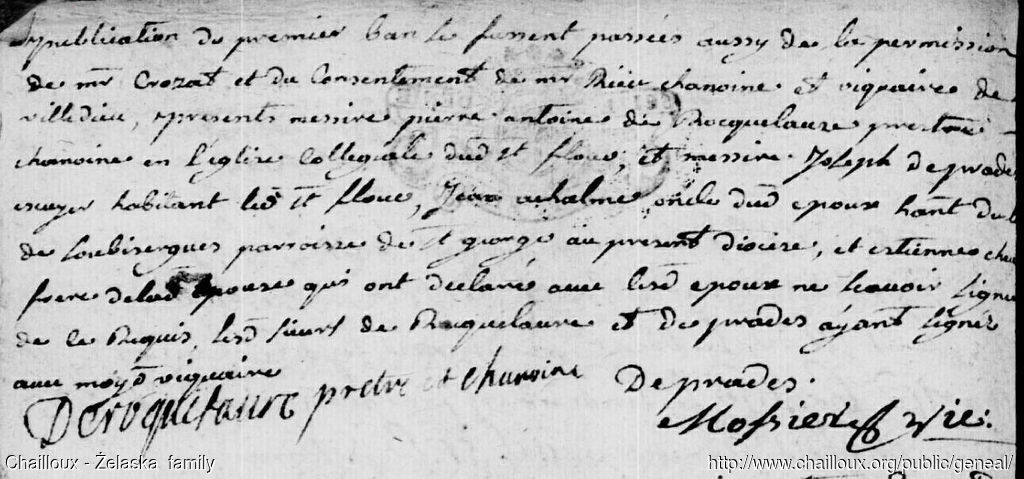 publication du premier ban se fussent passées aussy de la permission
de mr Crozat et du Consentement de mr Rieu chanoine et viquaire de
villedieu, presents messire pierre antoine de Rocquelaure prestre
chanoine en l'eglise Collegiale dud st flour, et messire Joseph de prades
escuyer habitant led st flour, Jean achalme oncle dud epoux hant du
de Loubisergues parroisse de st george au present diocese, et estienne
frere de lad epouse qui ont declaré avec lesd epoux ne scavoir signer
de ce Requis, lesd sieurs de Rocquelaure et de prades ayant signés
avec moyd viquaire
Deroquelaure pretre et chanoine Deprades.
Mossier vic:
Chailloux - Żelaska family
http://www.chailloux.org/public/geneal/